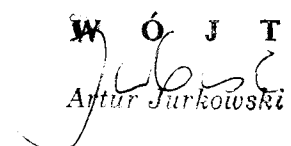 WÓJT
Artur Jurkowski